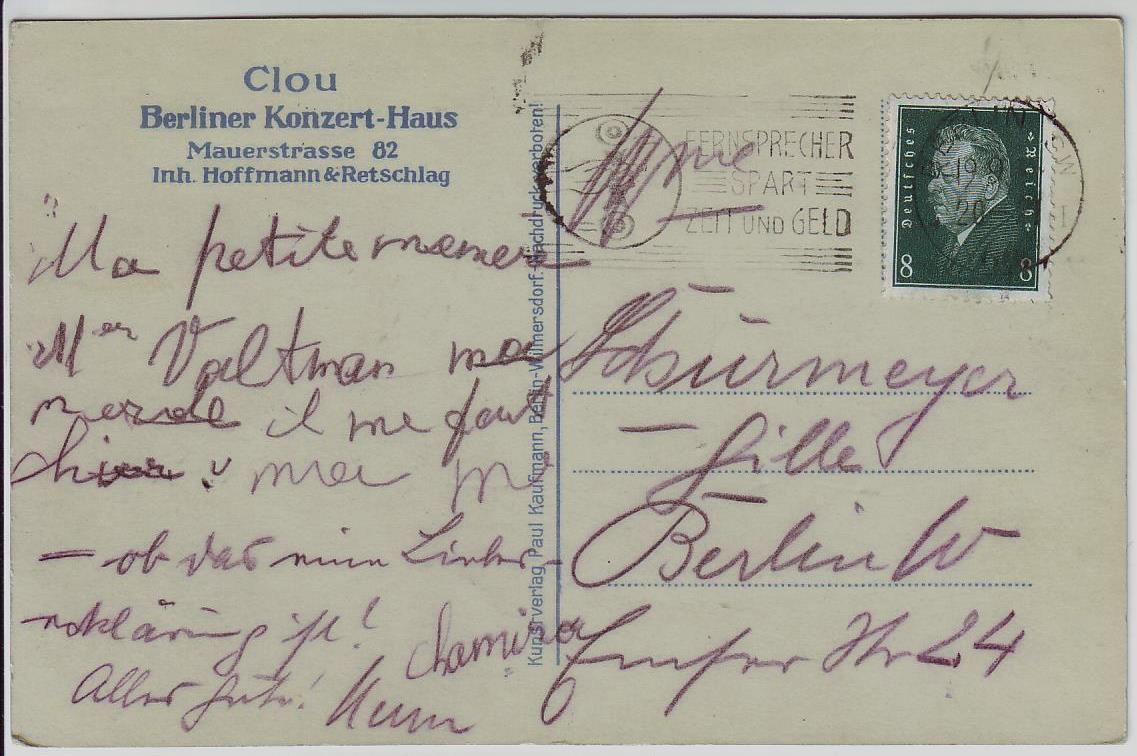 Clou
Berliner Konzert-Haus
Mauerstrasse 82
Inh. Hoffmann & Retschlag
Ma petite
Mer Valtman
merde il me faut
— ob das nun Liebes-
erklärung ist!
Alles Gute!
Kunstverlag Paul Kaufmann, Berlin-Wilmersdorf. Nachdruck verboten!
FERNSPRECHER
SPART
ZEIT UND GELD
Deutsches Reich
8 8
Schürmeyer
— Gille
Berlin W
Emser Str 24